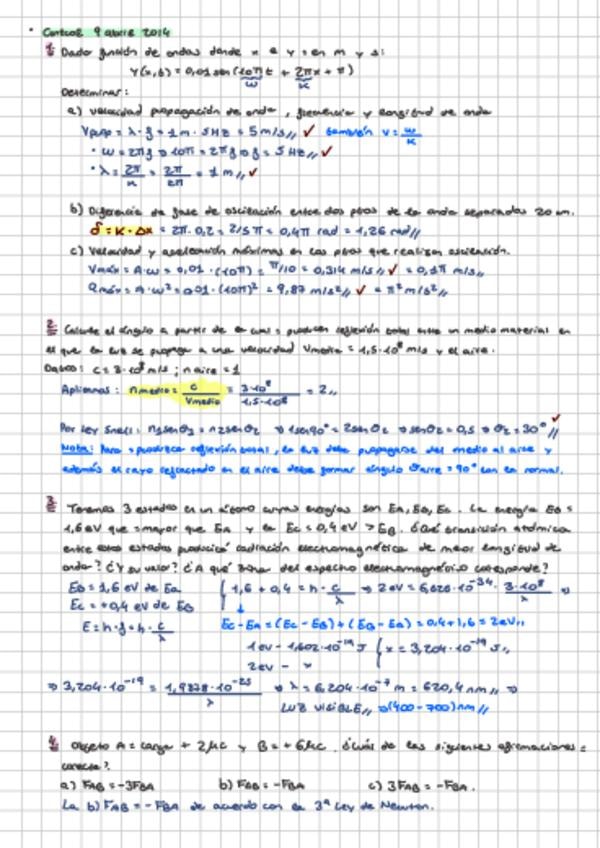 • Control 9 abril 2014
1. Dada función de ondas donde x e y = en m y s:
Y(x,t) = 0,01 sen (10πt + 2πx + π)
ω κ
Determinar:
a) velocidad propagación de onda, frecuencia y longitud de onda
Vprop = λ · f = 1 m · 5 Hz = 5 m/s // ✓ también v = ω/κ
• ω = 2πf ⇒ 10π = 2πf ⇒ f = 5 Hz // ✓
• λ = 2π/κ = 2π/2π = 1 m // ✓
b) Diferencia de fase de oscilación entre dos ptos de la onda separados 20 cm.
δ = κ · Δx = 2π · 0,2 = 2/5 π = 0,4π rad = 1,26 rad //
c) Velocidad y aceleración máximas en los ptos que realizan oscilación.
Vmáx = A·ω = 0,01 · (10π) = π/10 = 0,314 m/s // ✓ = 0,1π m/s //
amáx = A·ω² = 0,01 · (10π)² = 9,87 m/s² // ✓ = π² m/s² //
2. Calcule el ángulo a partir de la cual = producen reflexión total entre un medio material en
el que la luz se propaga a una velocidad Vmedio = 1,5·10⁸ m/s y el aire.
Datos: c = 3·10⁸ m/s ; n aire = 1
Aplicamos: nmedio = c/Vmedio = 3·10⁸/1,5·10⁸ = 2 //
Por ley Snell: n₁senθ₁ = n₂senθ₂ ⇒ 1sen90° = 2senθ₂ ⇒ senθ₂ = 0,5 ⇒ θ₂ = 30° // ✓
Nota: Para = produzca reflexión total, la luz debe propagarse del medio al aire y
además el rayo refractado en el aire debe formar ángulo θaire = 90° con la normal.
3. Tenemos 3 estados en un átomo cuyas energías son EA, EB, Ec. La energía EB =
1,6 eV que = mayor que EA y la Ec = 0,4 eV > EB. ¿Qué transición atómica
entre estos estados producirá radiación electromagnética de menor longitud de
onda? ¿Y su valor? ¿A qué zona del espectro electromagnético corresponde?
EB = 1,6 eV de Ea { 1,6 + 0,4 = h · c/λ ⇒ 2eV = 6,626·10⁻³⁴ · 3·10⁸/λ ⇒
Ec = +0,4 eV de EB
E = h·f = h · c/λ Ec - EA = (Ec - EB) + (EB - EA) = 0,4 + 1,6 = 2eV //
1eV - 1,602·10⁻¹⁹ J { x = 3,204·10⁻¹⁹ J //
2eV - x
⇒ 3,204·10⁻¹⁹ = 1,9878·10⁻²⁵/λ ⇒ λ = 6,204·10⁻⁷ m = 620,4 nm // ⇒
LUZ VISIBLE // ⇒ (400-700) nm //
4. Objeto A = carga + 2μC y B = + 6μC. ¿Cuál de las siguientes afirmaciones =
correcta?
a) FAB = -3FBA b) FAB = -FBA c) 3FAB = -FBA.
La b) FAB = -FBA de acuerdo con la 3ª Ley de Newton.